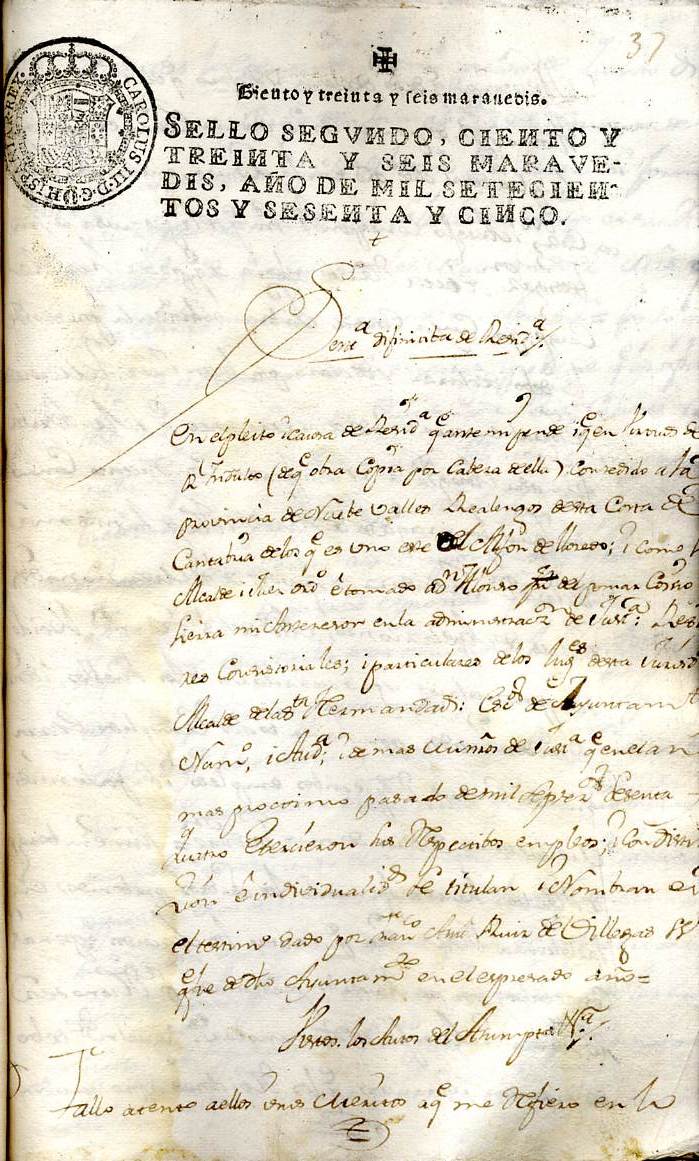 37
CAROLUS III. D. G. HISPANIAR. REX.
Siento y treinta y seis maravedis.
SELLO SEGVNDO, CIENTO Y
TREINTA Y SEIS MARAVE-
DIS, AÑO DE MIL SETECIEN-
TOS Y SESENTA Y CINCO.
Senca difinitiba de Resida
En el pleito i causa de Resida qe ante mi pende i qe en virtud de
Rl Titulo (de qe obra Copia por Cabeza de ella) Conzedido a la
provincia de Nuebe Valles Realengos desta Costa de
Cantabria de los qe es uno este
Alcalde i Juez ordo è tomado a Dn Alonso del pomar
tierra mi Antezesor en la administrazon de Justa:
res Consistoriales; i particulares de los lugs desta
Alcalde de la Sta Hermandad: Esno de Ayuntamto
Numo, i Auda; i demas de Justa qe en el año
mas procsimo pasado de mil septezos sesenta
i quatro Exercieron sus Respectibos empleos; i con distin
zion è individualidd se titulan i Nombran en
el testimo dado por Franco Anto Ruiz de Villegas
qe fue de dho Ayuntamto en el espresado año=
Vistos los Autos del Asumpto Na
Fallo atento a ellos i a sus meritos a qe me Refiero en lo